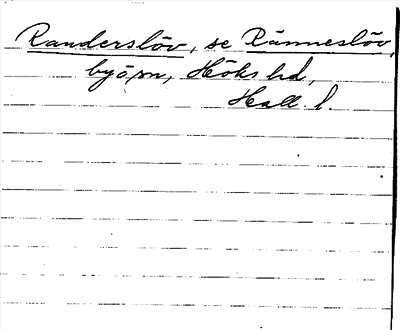 Randerslöv, se Ränneslöv,
by ö sn, Höks hd,
Hall. l.